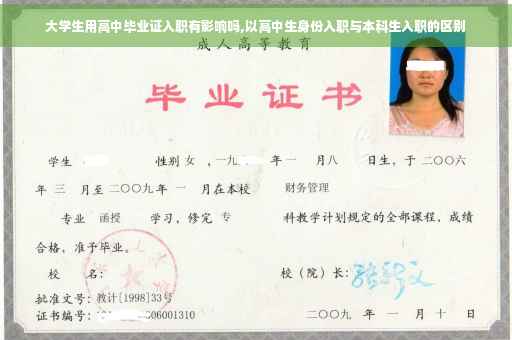 大学生用高中毕业证入职有影响吗,以高中生身份入职与本科生入职的区别
成人高等教育
毕业证书
学生 性别 女 ,一九 年 一 月 八 日生,于 二〇〇六
年 三 月至 二〇〇九 年 一 月在本校 财务管理
专业 函授 学习,修完 专 科教学计划规定的全部课程,成绩
合格,准予毕业。
校 名: 校(院)长:
批准文号:教计[1998]33号
证书编号: 06001310 二〇〇九 年 一 月 十 日